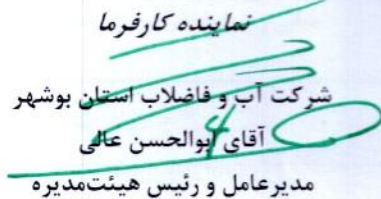 نماینده کارفرما
شرکت آب و فاضلاب استان بوشهر
آقای ابوالحسن عالی
مدیرعامل و رئیس هیئت‌مدیره